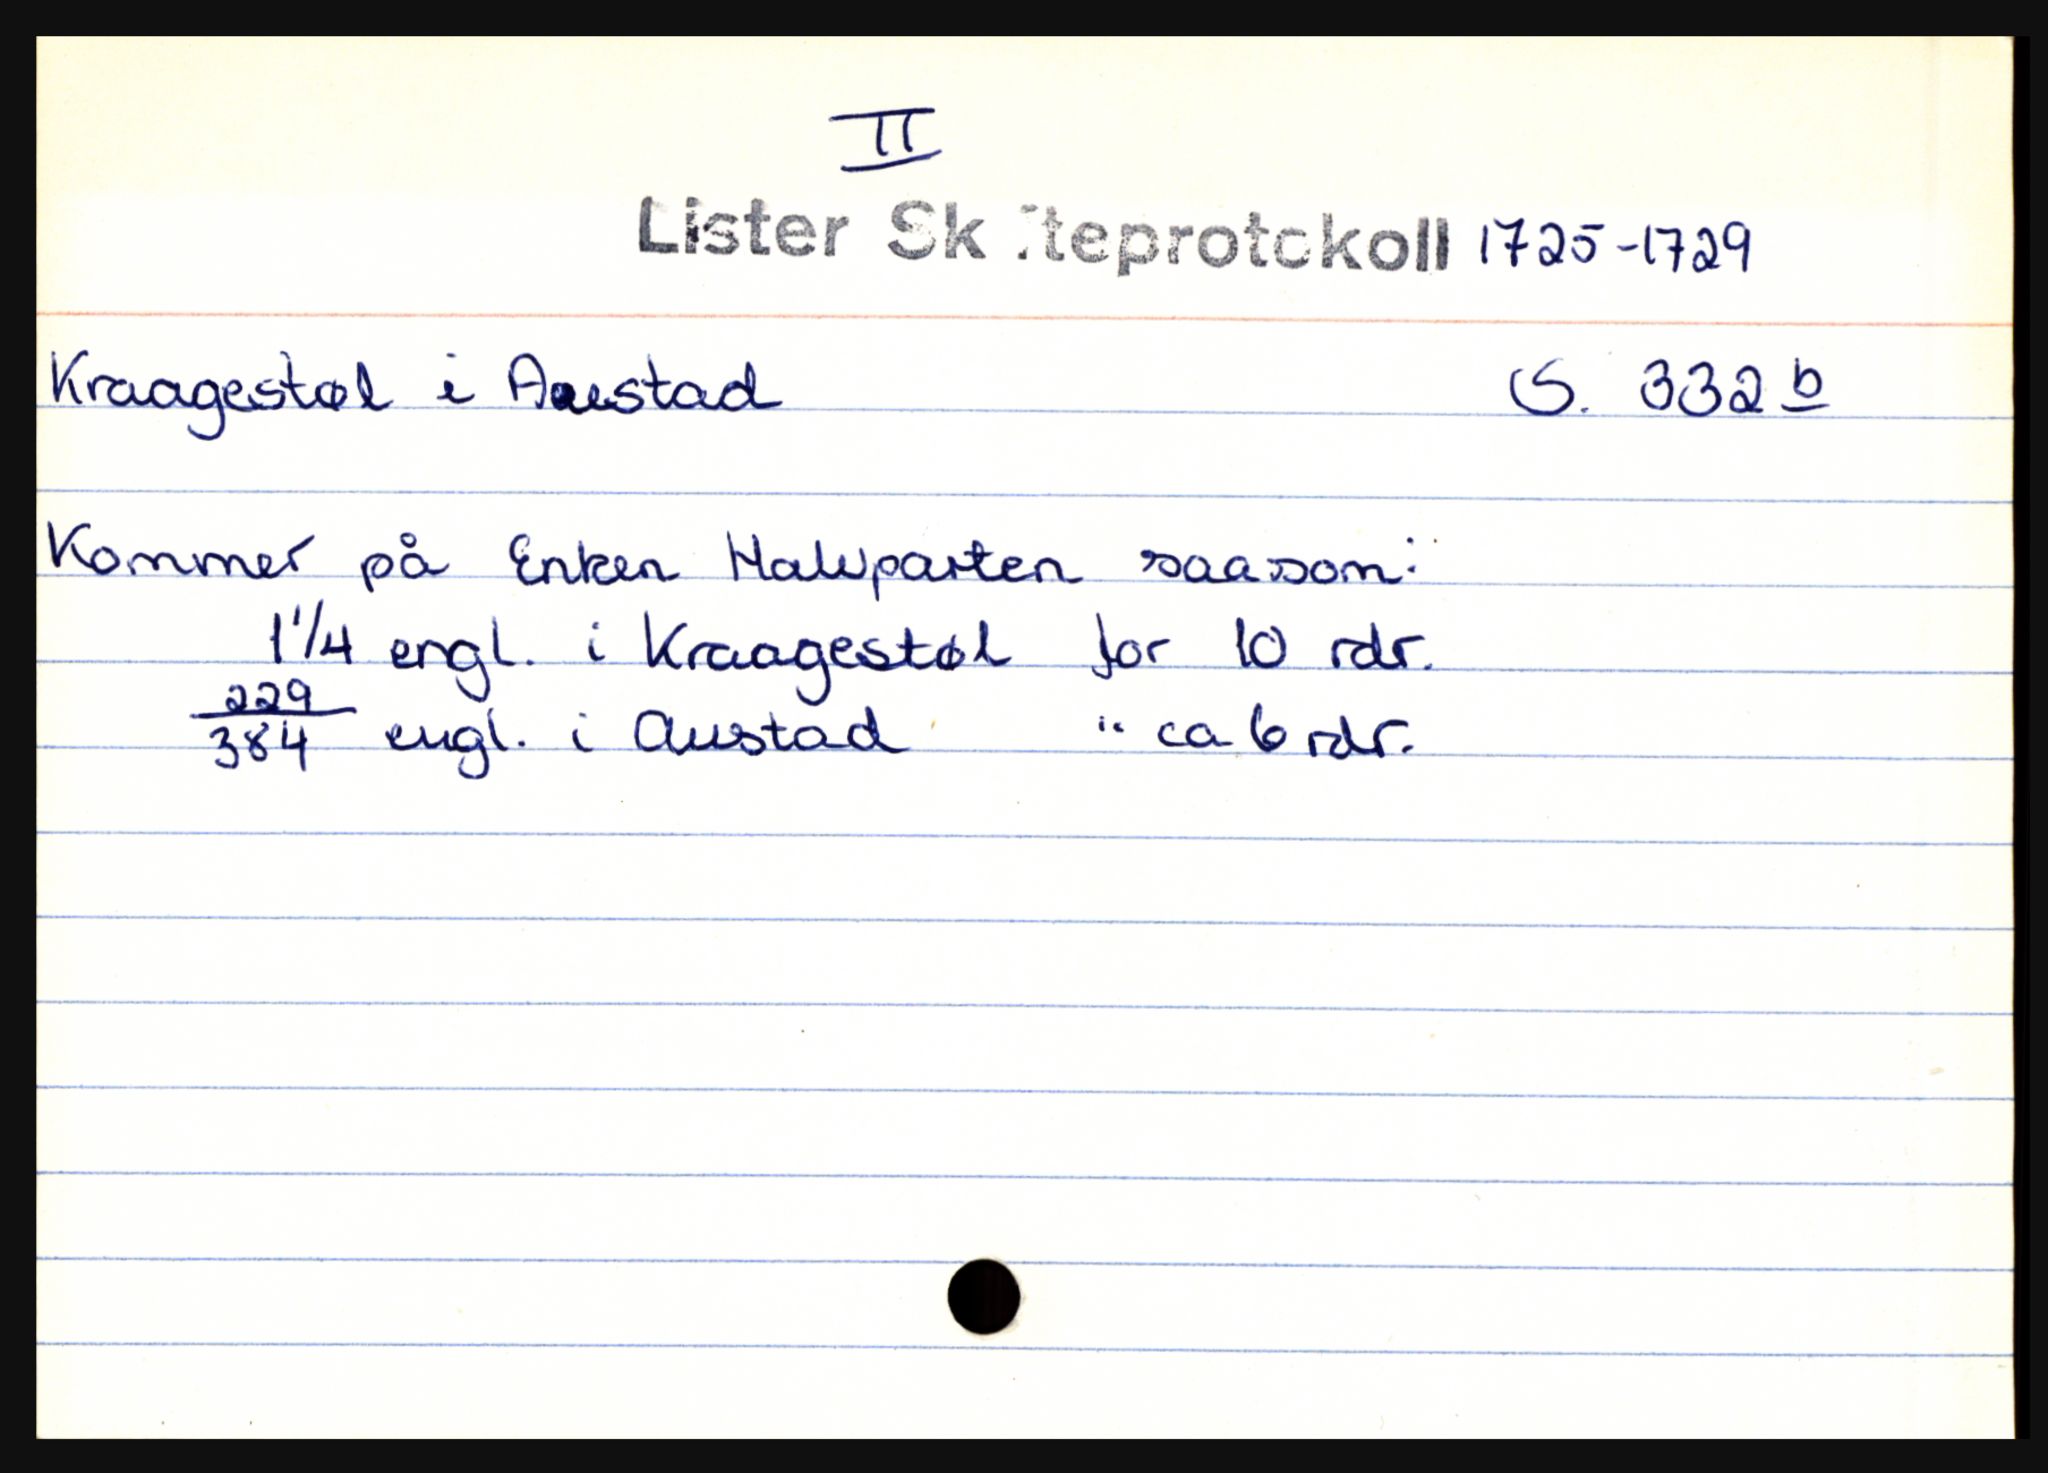 II
Lister Skifteprotokoll 1725-1729
Kraagestøl i Austad S. 332 b
Kommer på Enken Halvparten saasom:
1 1/4 engl. i Kraagestøl for 10 rdr.
229/384 engl. i Austad " ca 6 rdr.